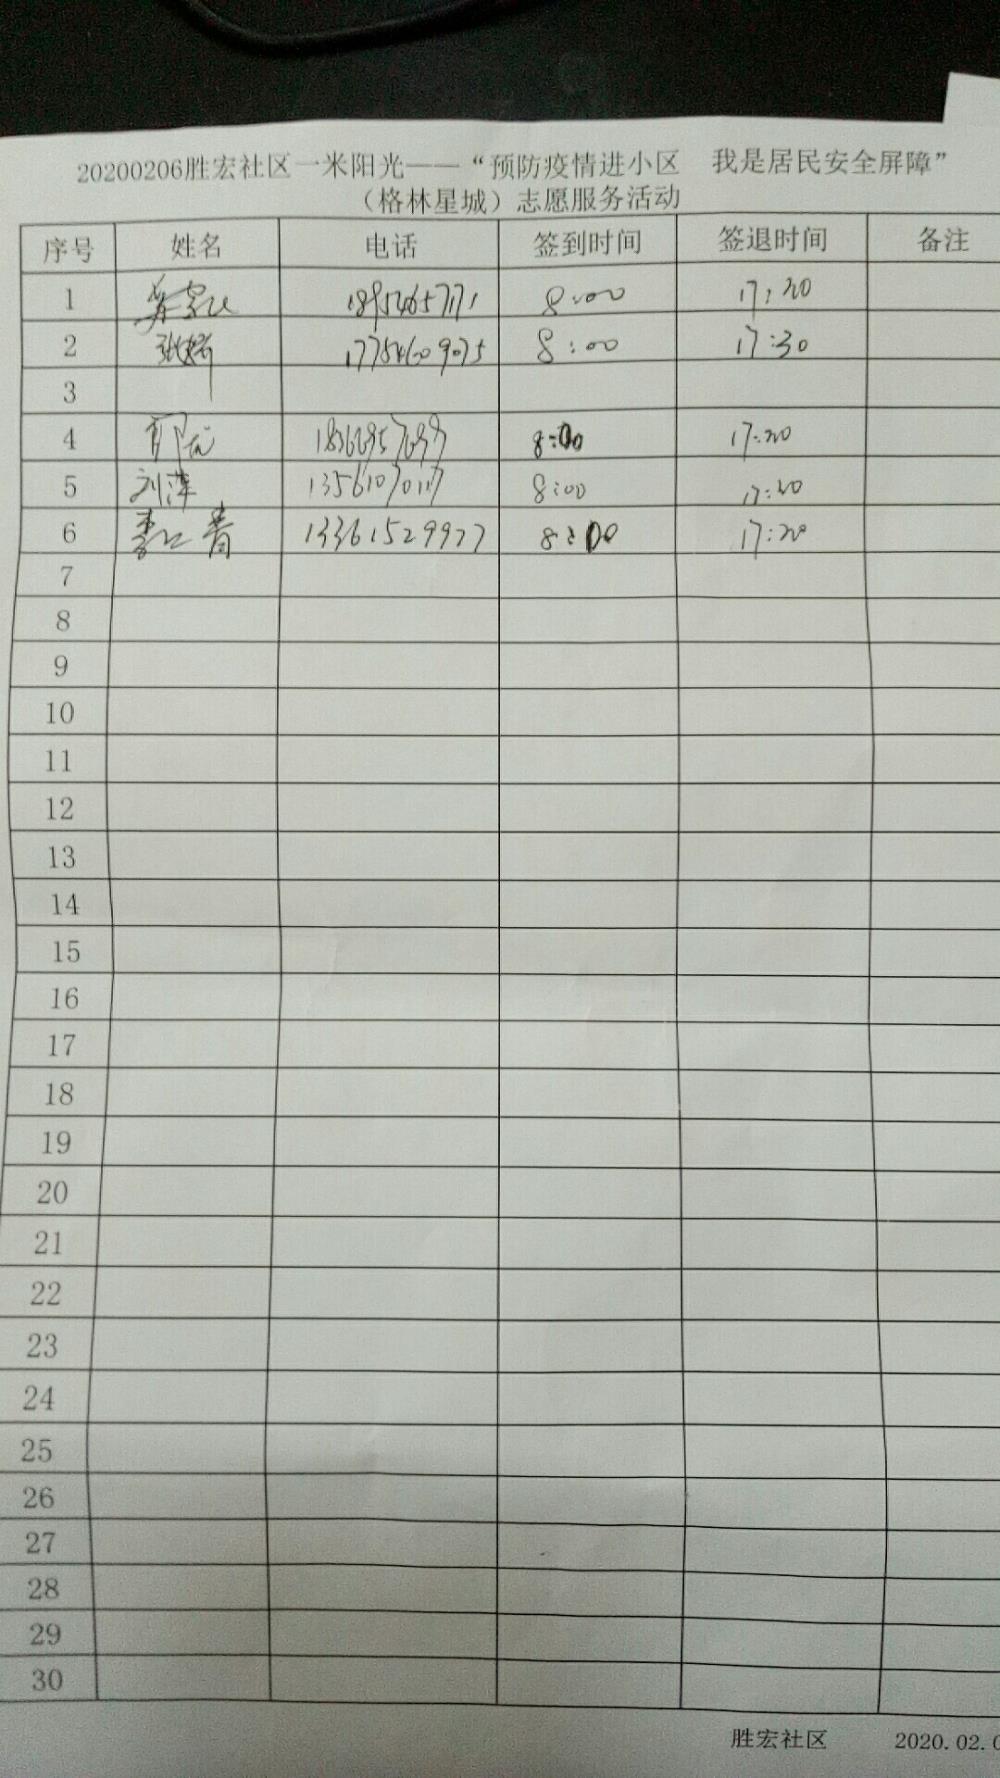 20200206胜宏社区一米阳光——“预防疫情进小区 我是居民安全屏障”
（格林星城）志愿服务活动
序号 姓名 电话 签到时间 签退时间 备注
1 8:00 17:20
2 17754609075 8:00 17:30
3
4 8:00 17:20
5 刘萍 8:00 17:20
6 13361529977 8:00 17:20
7
8
9
10
11
12
13
14
15
16
17
18
19
20
21
22
23
24
25
26
27
28
29
30
胜宏社区 2020.02.0